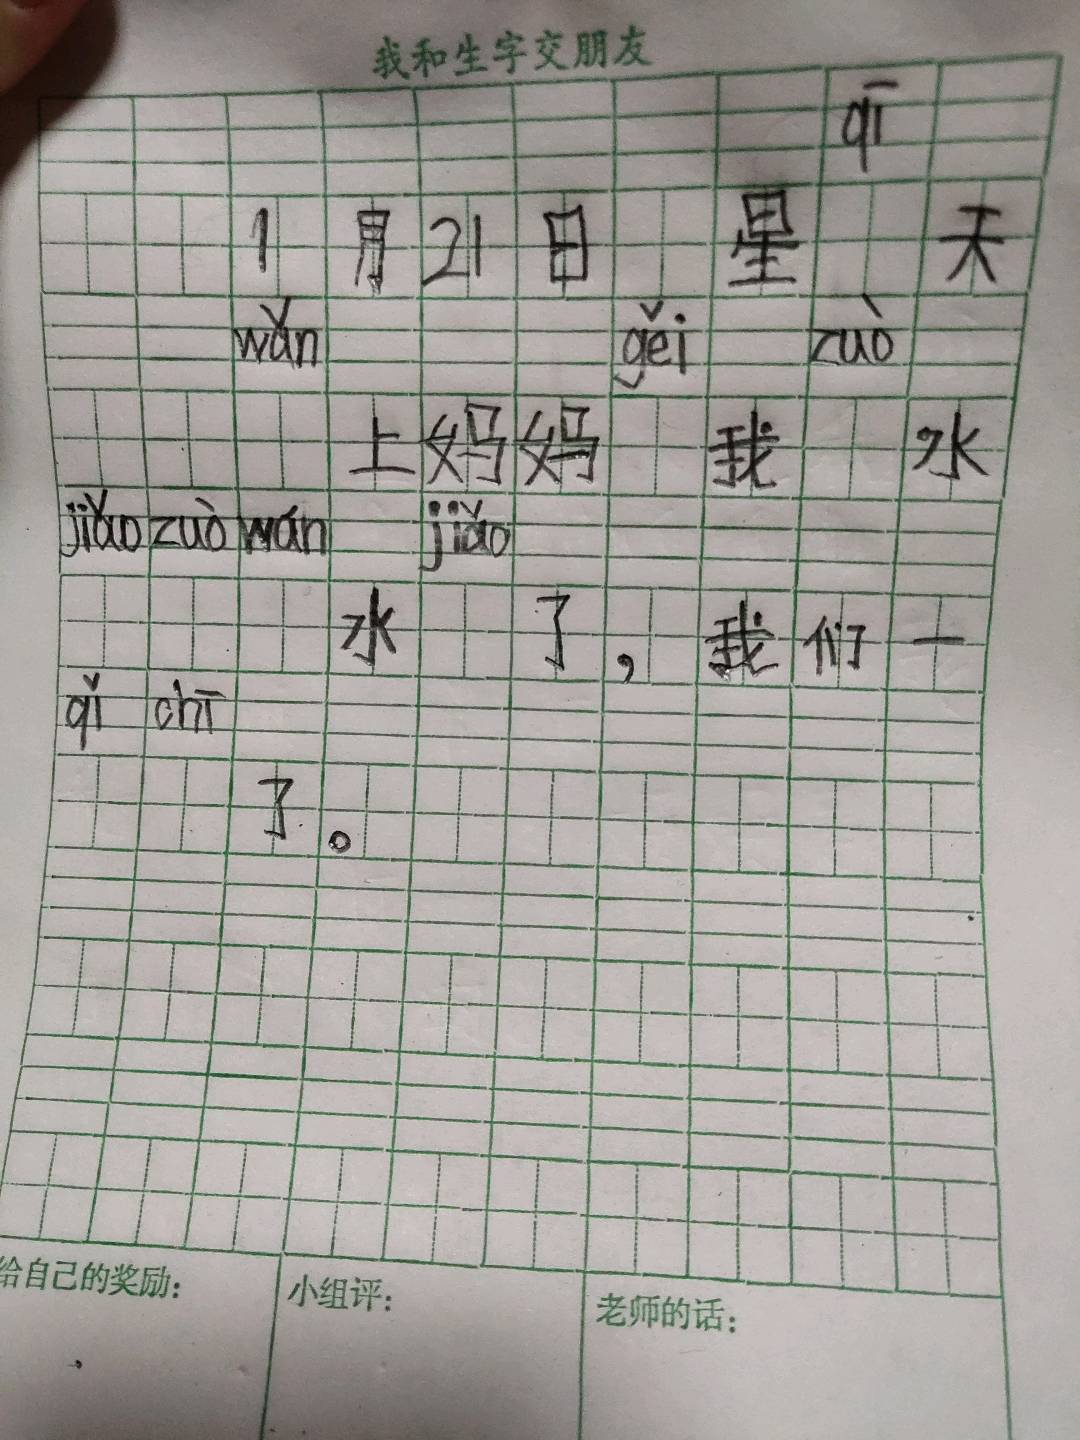 我和生字交朋友
qī
1月21日 星 天
wǎn gěi zuò
上妈妈 我 水
jiǎo zuò wán jiǎo
水 了，我们一
qǐ chī
了。
给自己的奖励：
小组评：
老师的话：